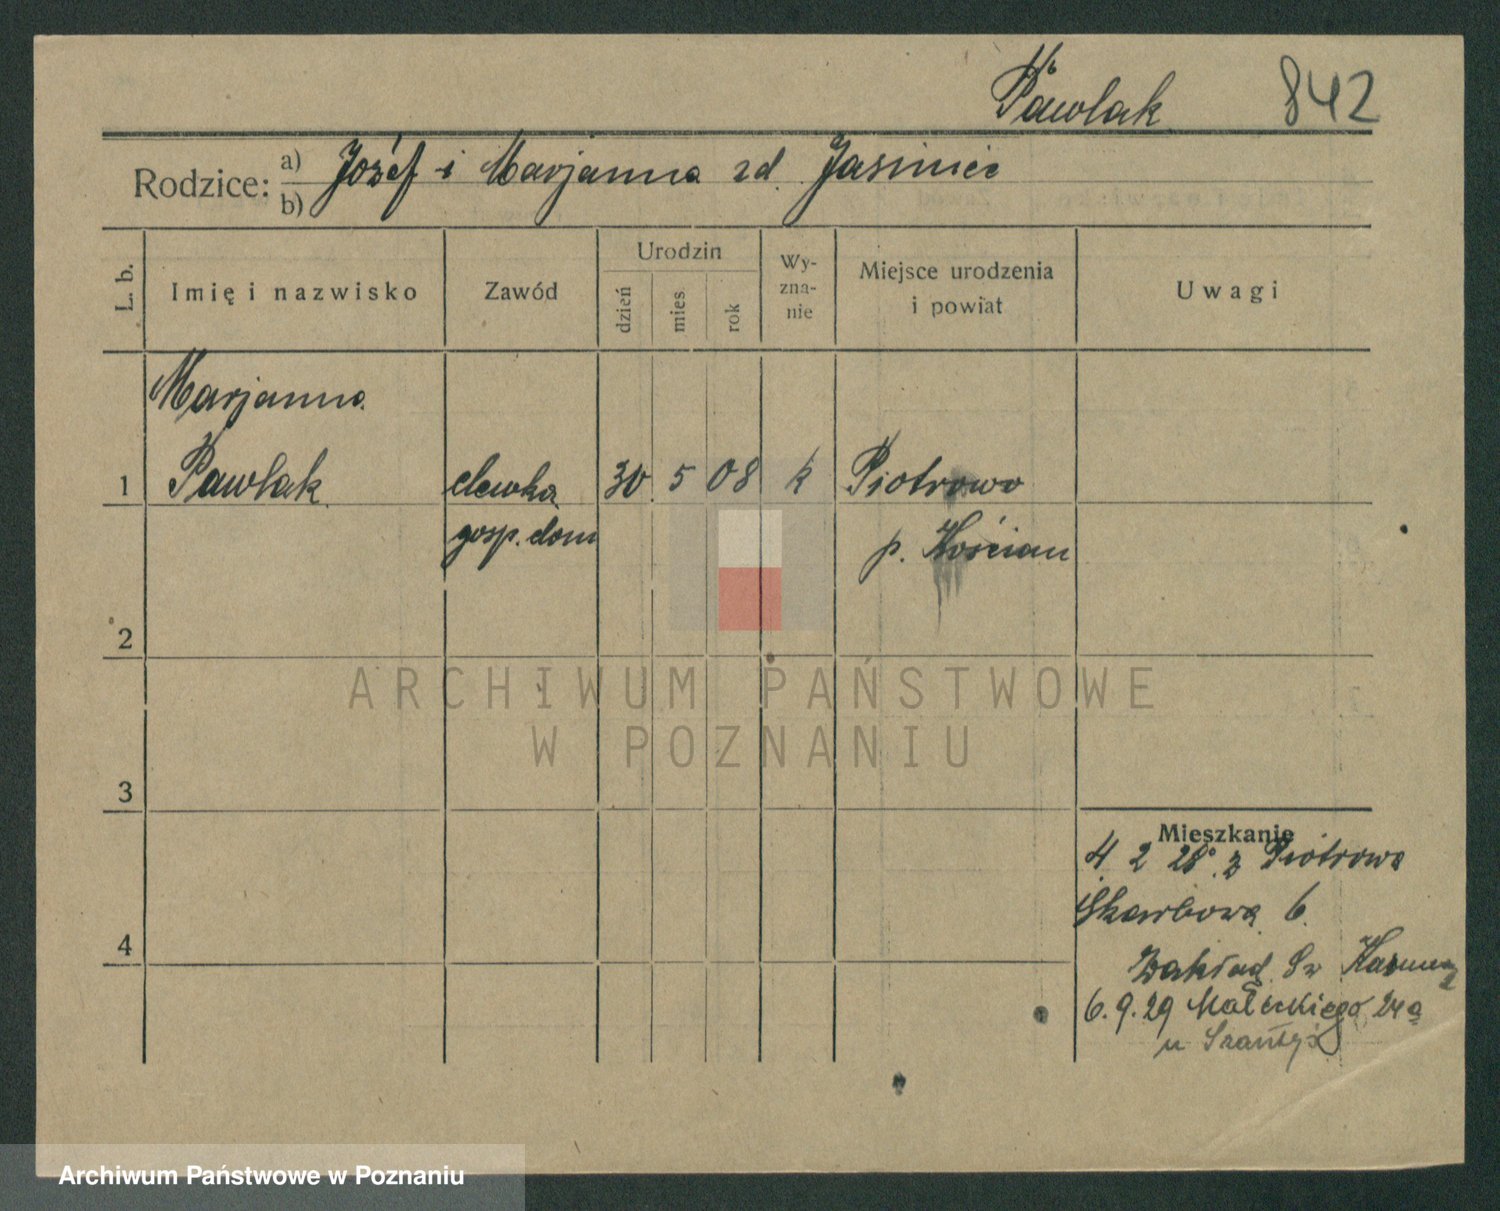 Pawlak 842
Rodzice: a) Józef i Marjanna zd. Jasiniec
b)
L. b. Imię i nazwisko Zawód Urodzin dzień mies rok Wyznanie Miejsce urodzenia i powiat Uwagi
Marjanna
1 Pawlak elewka 30 5 08 k Piotrowo
gosp. dom p. Kościan
2
ARCHIWUM PAŃSTWOWE
W POZNANIU
3
Mieszkanie
4 2 28. z Piotrowo
Skarbowa 6.
4
Zakład Św
6.9.29 Małeckiego 24a
u
Archiwum Państwowe w Poznaniu